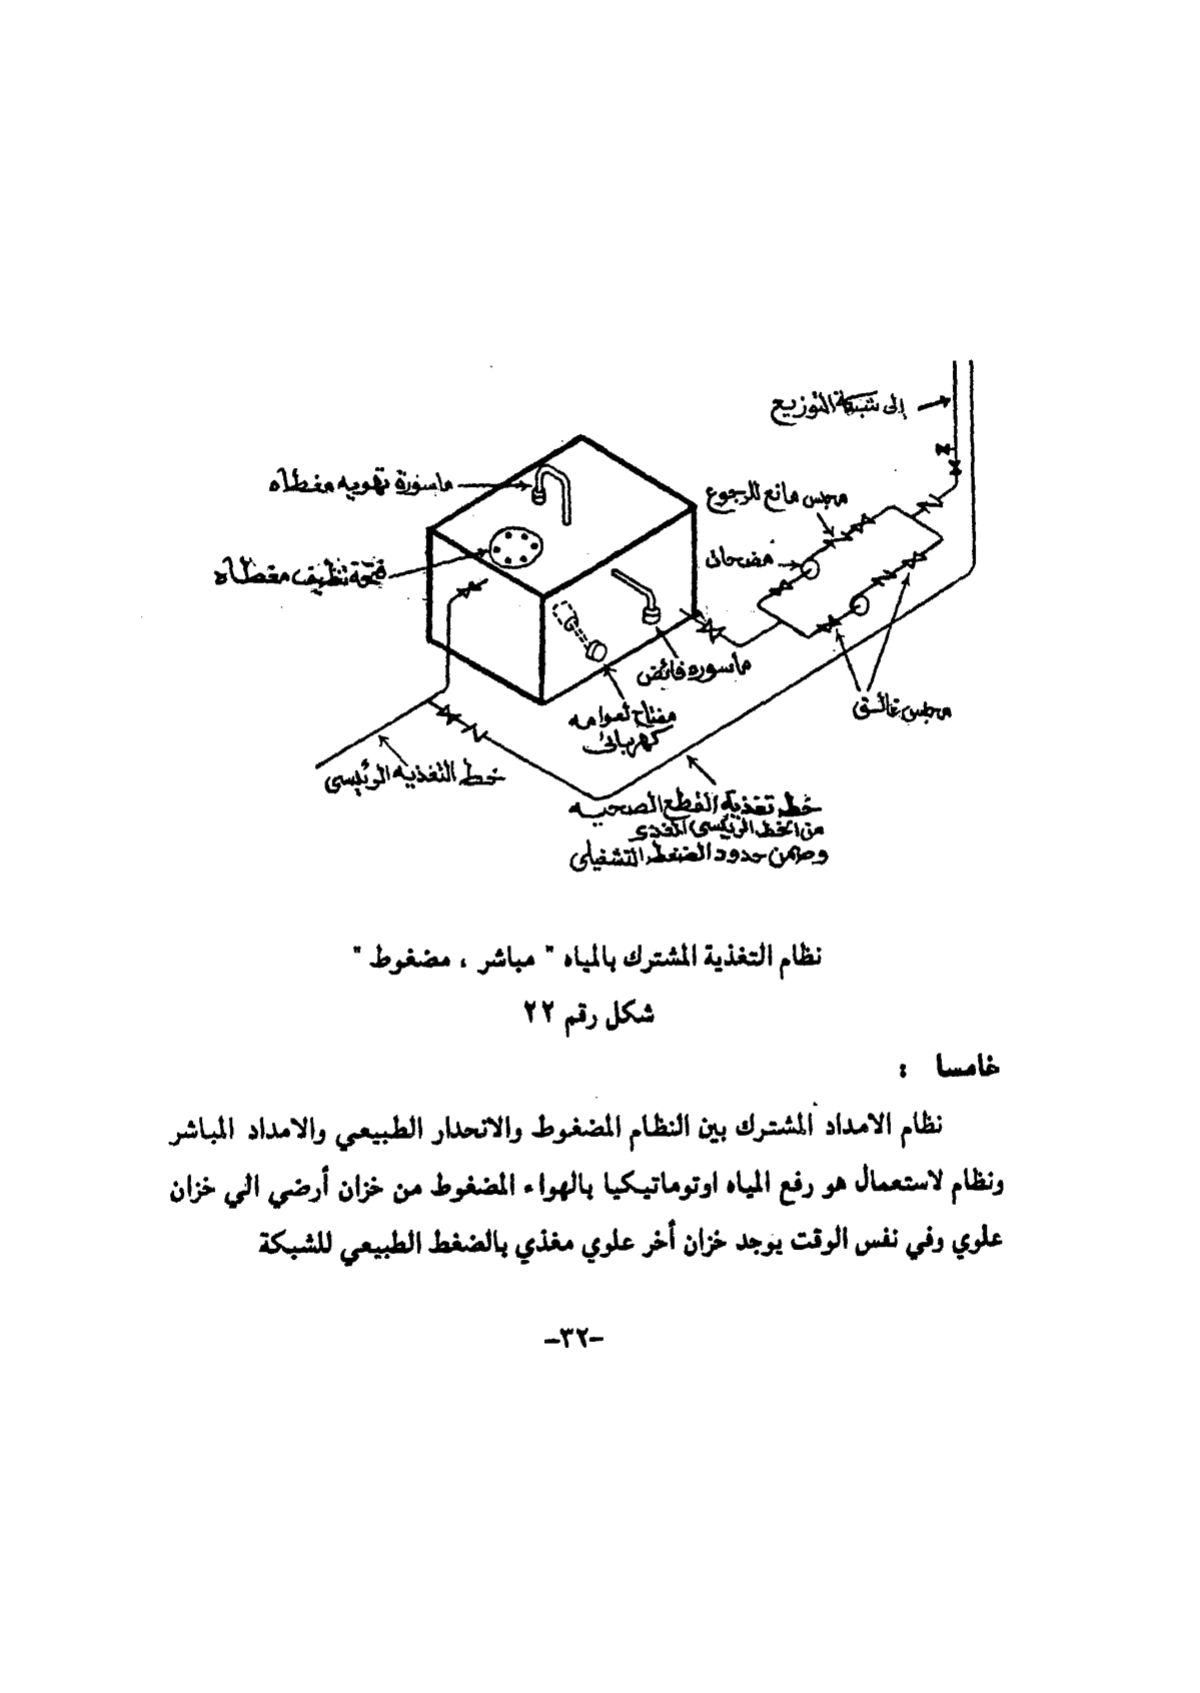 إلى شبكة التوزيع
ماسورة تهويه مغطاه
محبس مانع للرجوع
مضخات
فتحة تنظيف مغطاه
ماسوره فائض
محبس غالق
مفتاح لعوامه
كهربائى
خط التغذيه الرئيسى
خط تغذية القطع الصحيه
من الخط الرئيسى المغذى
وضمن حدود الضغط التشغيلى
نظام التغذية المشترك بالمياه " مباشر ، مضغوط "
شكل رقم ٢٢
خامسا :
نظام الامداد المشترك بين النظام المضغوط والانحدار الطبيعي والامداد المباشر
ونظام لاستعمال هو رفع المياه اوتوماتيكيا بالهواء المضغوط من خزان أرضي الي خزان
علوي وفي نفس الوقت يوجد خزان أخر علوي مغذي بالضغط الطبيعي للشبكة
-٣٢-